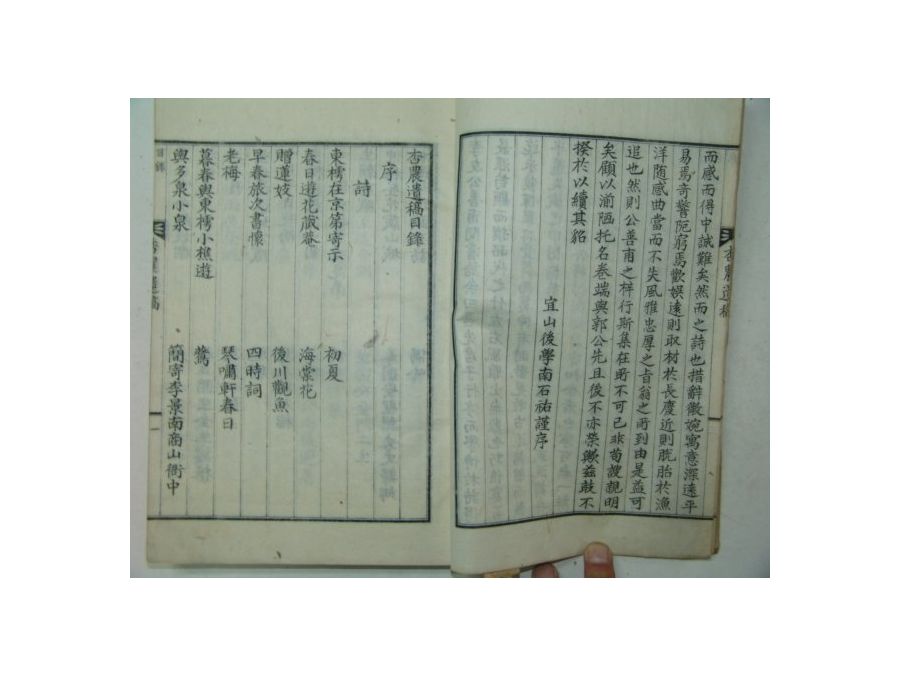 杏農遺稿
而感而得中誠難矣然而之詩也措辭微婉寓意深遠平
易焉奇警阨窮焉歡娛遠則取材於長慶近則胱胎於漁
洋随感曲當而不失風雅忠厚之旨翁之所到由是益可
追也然則公善甫之梓行斯集在所不可已非苟諛覩明
矣顧以湔陋托名卷端與郭公先且後不亦榮歟玆敢不
揆於以續其貂
宜山後學南石祐謹序
杏農遺稿目錄
序
詩
東樗在京第寄示 初夏
春日遊花藏菴 海棠花
贈蓮妓 後川觀魚
早春旅次書懷 四時詞
老梅 琴嘯軒春日
暮春與東樗小樵遊 鶯
與多泉小泉 簡寄李景南商山衙中
目錄
杏農遺稿
一